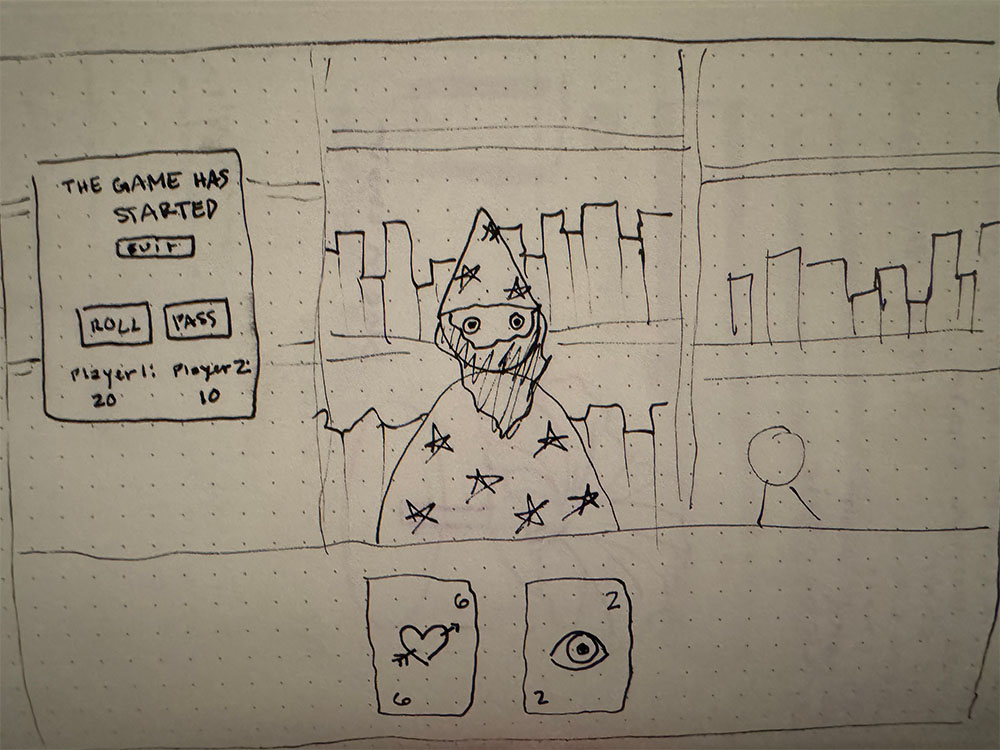 THE GAME HAS
STARTED
QUIT
ROLL PASS
Player 1: Player 2:
20 10
6 2
6 2